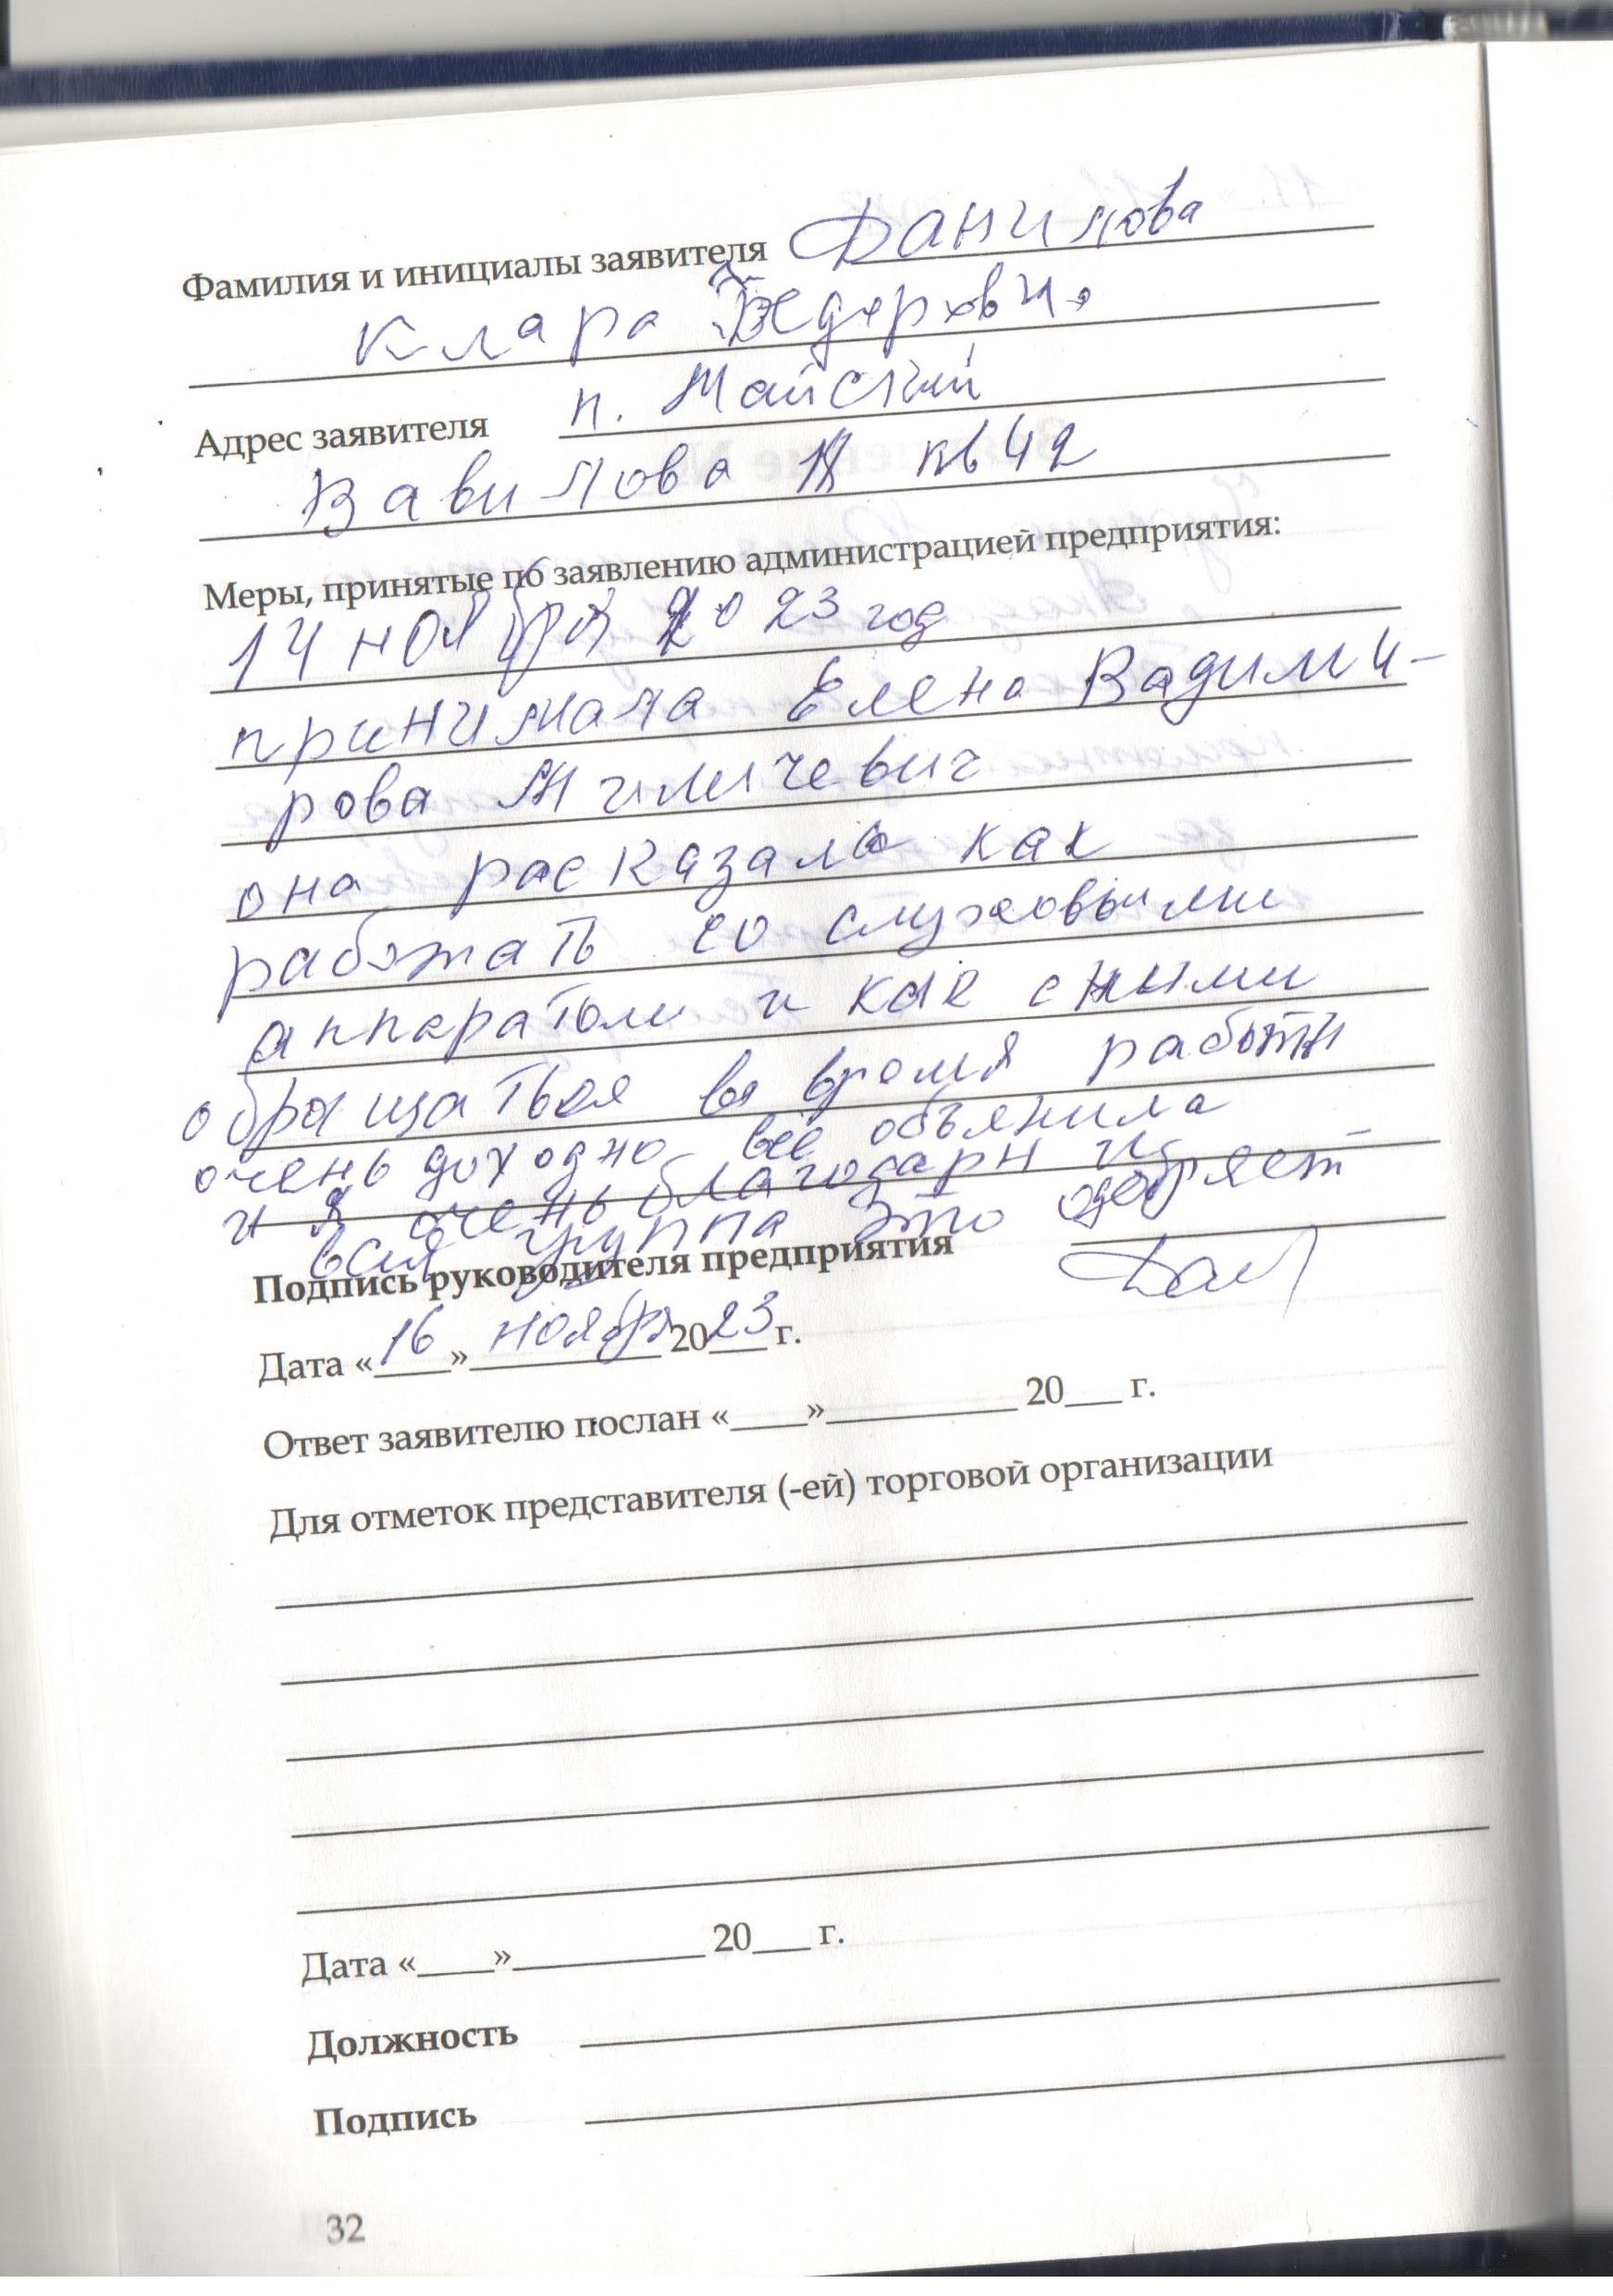 Фамилия и инициалы заявителя Данилова
Клара
Адрес заявителя п. Майский
Вавилова кв 42
Меры, принятые по заявлению администрацией предприятия:
14 ноября 2023 год
принимала Елена Вадими-
рова
она расказала как
работать со слуховыми
аппаратоми и как с ними
обращаться во время работы
очень доходно всё объянила
и я очень благодарн и
вся группа это одобряет
Подпись руководителя предприятия
Дата «16» ноября 2023 г.
Ответ заявителю послан «____»__________ 20___ г.
Для отметок представителя (-ей) торговой организации
Дата «____»__________ 20___ г.
Должность
Подпись
32